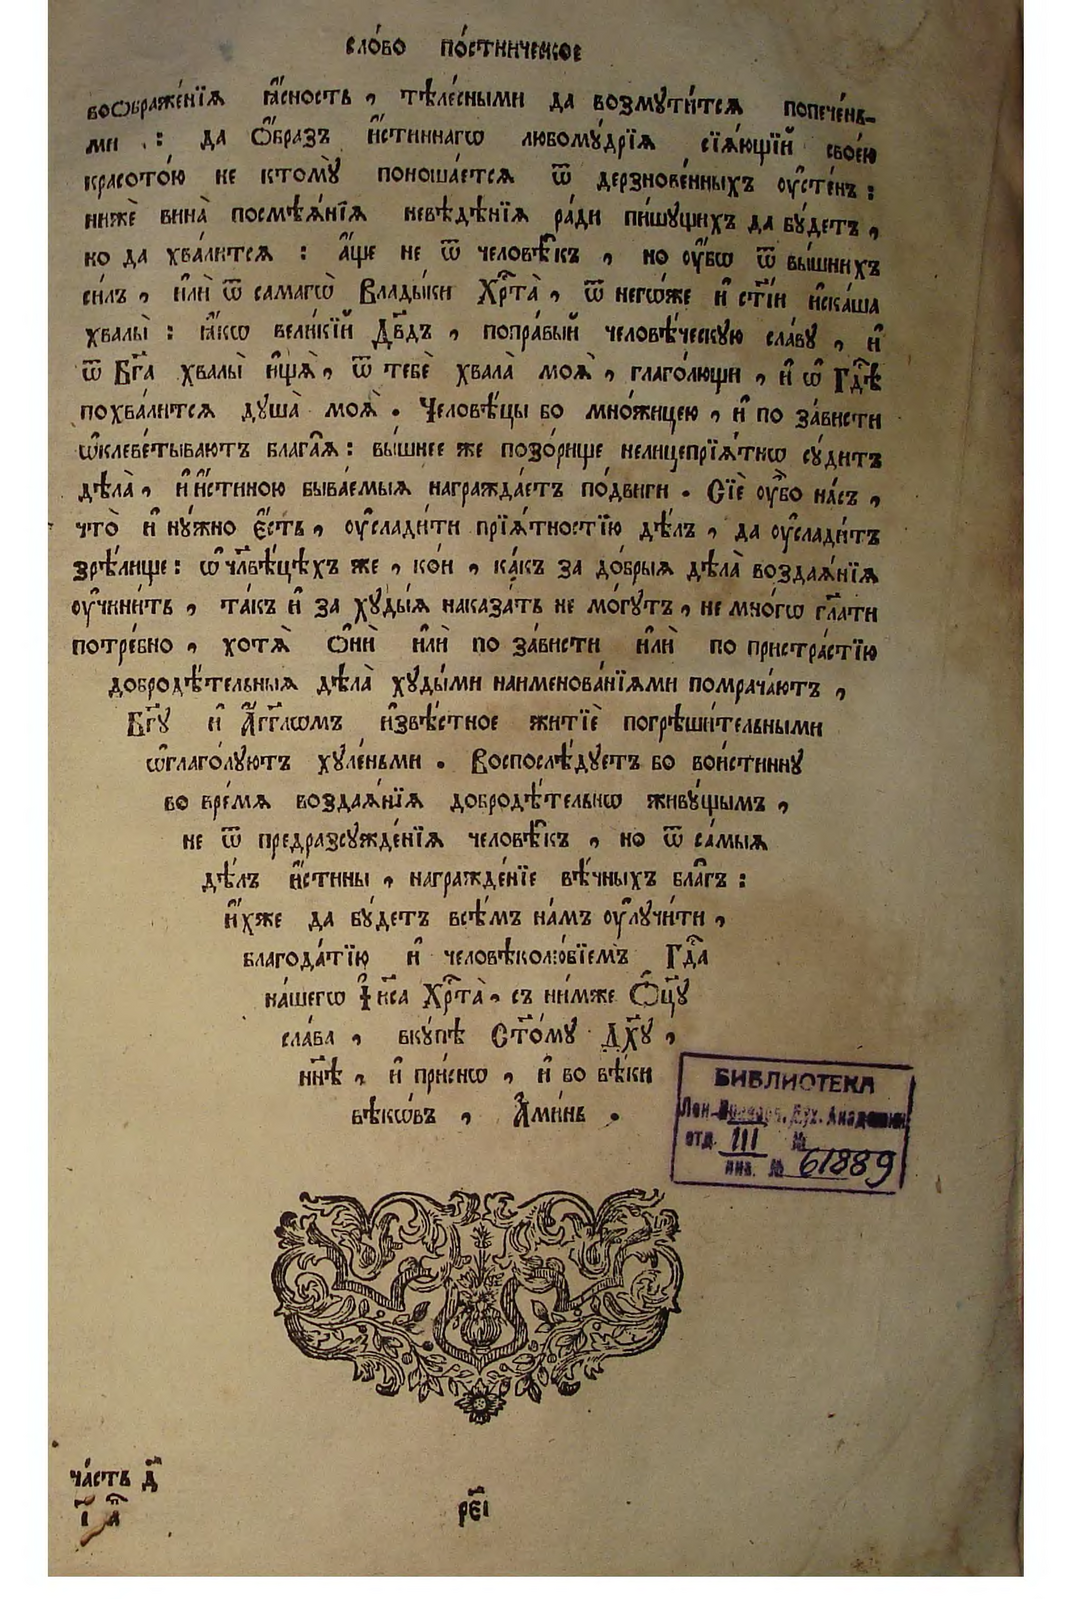 сло́во по́стническое
воѡбраже́нїѧ ꙗ҆́сность , тѣле́сными да возмꙋти́тсѧ попече́нь-
ми : да ѻ҆́бразъ и҆́стиннагѡ любомꙋ́дрїѧ сїѧ́ющїй свое́ю
красото́ю не ктомꙋ̀ поноша́етсѧ ѿ дерзнове́нныхъ ᲂу҆сте́нъ :
нижѐ вина̀ посмѣѧ́нїѧ невѣ́дѣнїѧ ра́ди пи́шꙋщихъ да бꙋ́детъ ,
но да хва́литсѧ : а҆́ще не ѿ человѣ̑къ , но ᲂу҆́бѡ ѿ вы́шнихъ
си́лъ , и҆лѝ ѿ самагѡ̀ Влады́ки Хрⷭ҇та̀ , ѿ негѡ́же и҆ ст҃і́и и҆ска́ша
хвалы̀ : ꙗ҆́кѡ вели́кїй Дв҃дъ , попра́вый человѣ́ческꙋю сла́вꙋ , и҆
ѿ Бг҃а хвалы̀ и҆щѧ̀ , ѿ тебє̀ хвала̀ моѧ̀ , глаго́лющи , и҆ ѡ҆ Гдⷭ҇ѣ
похва́литсѧ дꙋша̀ моѧ̀ . Человѣ́цы бо мно́жицею , и҆ по за́висти
ѡ҆клеве́тываютъ блага̑ѧ : вы́шнее же позо́рище нелицепрїѧ́тнѡ сꙋ́дитъ
дѣла̀ , и҆ и҆́стиною быва́емыѧ награжда́етъ по́двиги . Сїѐ ᲂу҆́бо на́съ ,
что̀ и҆ нꙋ́жно є҆́сть , ᲂу҆слади́ти прїѧ́тностїю дѣ́лъ , да ᲂу҆слади́тъ
зрѣ́лище : ѡ҆ чл҃вѣ́цѣхъ же , ко́и , ка́къ за дѡ́брыѧ дѣла̀ воздаѧ́нїѧ
ᲂу҆чини́ть , та́къ и҆ за хꙋды́ѧ наказа́ть не мо́гꙋтъ , не мно́гѡ гл҃ати
потре́бно , хотѧ̀ ѻ҆нѝ и҆лѝ по за́висти и҆лѝ по пристра́стїю
добродѣ́тельныѧ дѣла̀ хꙋды́ми наименова́нїѧми помрача́ютъ ,
Бг҃ꙋ и҆ А҆́гг҃лѡмъ и҆звѣ́стное житїѐ погрѣши́тельными
ѡ҆глаго́лꙋютъ хꙋле́ньми . Воспослѣ́дꙋетъ бо вои́стиннꙋ
во вре́мѧ воздаѧ́нїѧ добродѣ́тельнѡ живꙋ́щымъ ,
не ѿ предразсꙋжде́нїѧ человѣ̑къ , но ѿ са́мыѧ
дѣ́лъ и҆́стины , награжде́нїе вѣ́чныхъ бла̑гъ :
и҆́хже да бꙋ́детъ всѣ́мъ на́мъ ᲂу҆лꙋчи́ти ,
благода́тїю и҆ человѣколю́бїемъ Гдⷭ҇а
на́шегѡ І҆и҃са Хрⷭ҇та̀ , съ ни́мже Ѻ҆ц҃ꙋ̀
сла́ва , вкꙋ́пѣ Ст҃о́мꙋ Дх҃ꙋ ,
нн҃ѣ , и҆ при́снѡ , и҆ во вѣ́ки
вѣкѡ́въ , А҆ми́нь .
БИБЛИОТЕКА
Лен. Дух. Академии
отд. III №
инв. № 61889
ча́сть д҃
і҃ а҃
рє҃і